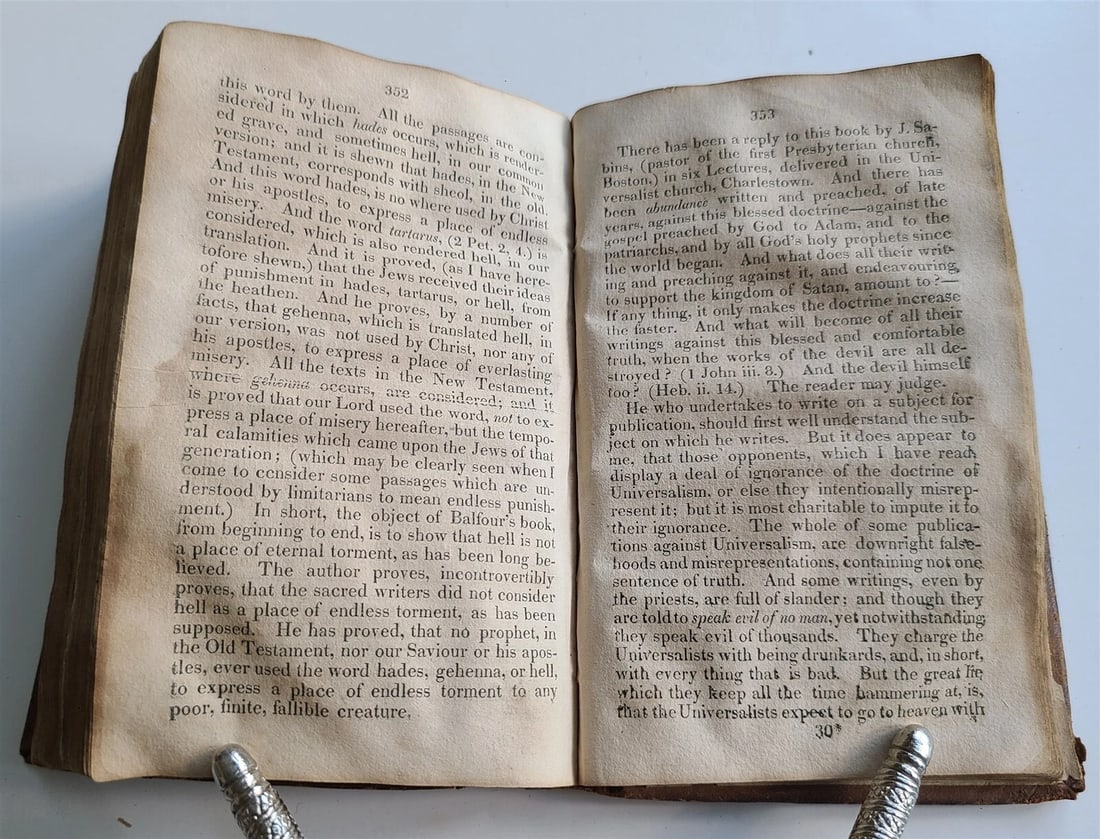 352
this word by them. All the passages are con-
sidered in which hades occurs, which is render-
ed grave, and sometimes hell, in our common
version; and it is shewn that hades, in the New
Testament, corresponds with sheol, in the old.
And this word hades, is no where used by Christ
or his apostles, to express a place of endless
misery. And the word tartarus, (2 Pet. 2, 4.) is
considered, which is also rendered hell, in our
translation. And it is proved, (as I have here-
tofore shewn,) that the Jews received their ideas
of punishment in hades, tartarus, or hell, from
the heathen. And he proves, by a number of
facts, that gehenna, which is translated hell, in
our version, was not used by Christ, nor any of
his apostles, to express a place of everlasting
misery. All the texts in the New Testament,
where gehenna occurs, are considered; and it
is proved that our Lord used the word, not to ex-
press a place of misery hereafter, but the tempo-
ral calamities which came upon the Jews of that
generation; (which may be clearly seen when I
come to consider some passages which are un-
derstood by limitarians to mean endless punish-
ment.) In short, the object of Balfour's book,
from beginning to end, is to show that hell is not
a place of eternal torment, as has been long be-
lieved. The author proves, incontrovertibly
proves, that the sacred writers did not consider
hell as a place of endless torment, as has been
supposed. He has proved, that no prophet, in
the Old Testament, nor our Saviour or his apos-
tles, ever used the word hades, gehenna, or hell,
to express a place of endless torment to any
poor, finite, fallible creature.
353
There has been a reply to this book by J. Sa-
bins, (pastor of the first Presbyterian church,
Boston,) in six Lectures, delivered in the Uni-
versalist church, Charlestown. And there has
been abundance written and preached, of late
years, against this blessed doctrine—against the
gospel preached by God to Adam, and to the
patriarchs, and by all God's holy prophets since
the world began. And what does all their writ-
ing and preaching against it, and endeavouring,
to support the kingdom of Satan, amount to?—
If any thing, it only makes the doctrine increase
the faster. And what will become of all their
writings against this blessed and comfortable
truth, when the works of the devil are all de-
stroyed? (1 John iii. 8.) And the devil himself
too? (Heb. ii. 14.) The reader may judge.
He who undertakes to write on a subject for
publication, should first well understand the sub-
ject on which he writes. But it does appear to
me, that those opponents, which I have read,
display a deal of ignorance of the doctrine of
Universalism, or else they intentionally misrep-
resent it; but it is most charitable to impute it to
their ignorance. The whole of some publica-
tions against Universalism, are downright false-
hoods and misrepresentations, containing not one
sentence of truth. And some writings, even by
the priests, are full of slander; and though they
are told to speak evil of no man, yet notwithstanding
they speak evil of thousands. They charge the
Universalists with being drunkards, and, in short,
with every thing that is bad. But the great lie
which they keep all the time hammering at, is,
that the Universalists expect to go to heaven with
30*